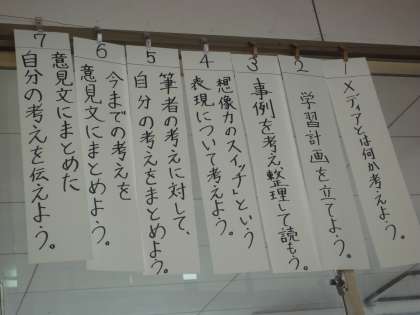 1
メディアとは何か考えよう。
2
学習計画を立てよう。
3
事例を考え整理して読もう。
4
「想像力のスイッチ」という
表現について考えよう。
5
筆者の考えに対して、
自分の考えをまとめよう。
6
今までの考えを
意見文にまとめよう。
7
意見文にまとめた
自分の考えを伝えよう。